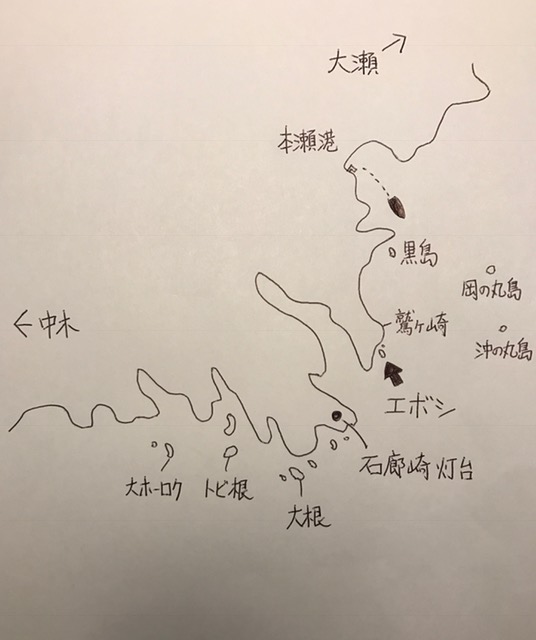 大瀬
本瀬港
黒島
岡の丸島
鷲ヶ崎
沖の丸島
中木
エボシ
石廊崎灯台
大ホーロク
トビ根
大根